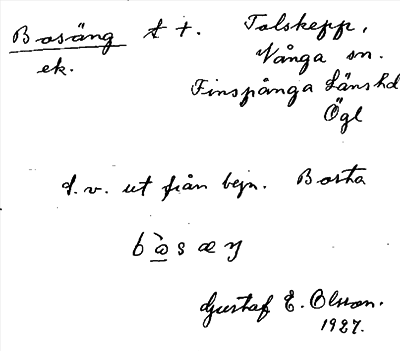 Bosäng t t. Talskepp,
ek. Vånga sn.
Finspånga länshd
Ögl
d.v. ut från bejn. Borta
Gustaf E. Olsson.
1927.